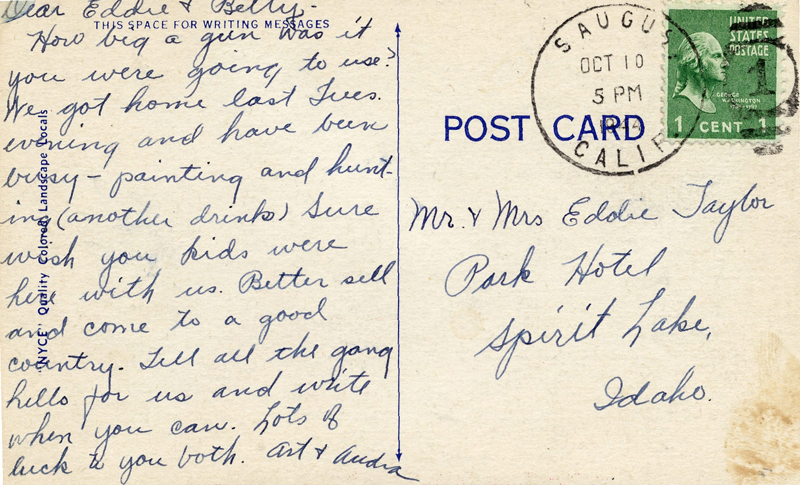 Dear Eddie & Betty,-
THIS SPACE FOR WRITING MESSAGES
How big a gun was it
you were going to use?
We got home last Tues.
evening and have been
busy - painting and hunt-
in (another drink) Sure
wish you kids were
here with us. Better sell
and come to a good
country. Tell all the gang
hello for us and write
when you can. Lots of
luck to you both. Art & Audra
"NYCE" Quality Colored Landscape Locals
POST CARD
SAUGUS
OCT 10
5 PM
CALIF
UNITED
STATES
POSTAGE
GEORGE
WASHINGTON
1 CENT 1
Mr. & Mrs Eddie Taylor
Park Hotel
Spirit Lake,
Idaho.